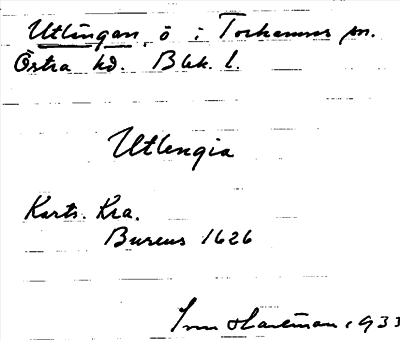 Utlängan, ö i Torhamns sn.
Östra hd. Blek. l.
Utlengia
Kartv. Kra.
Bureus 1626
Hartman 1933